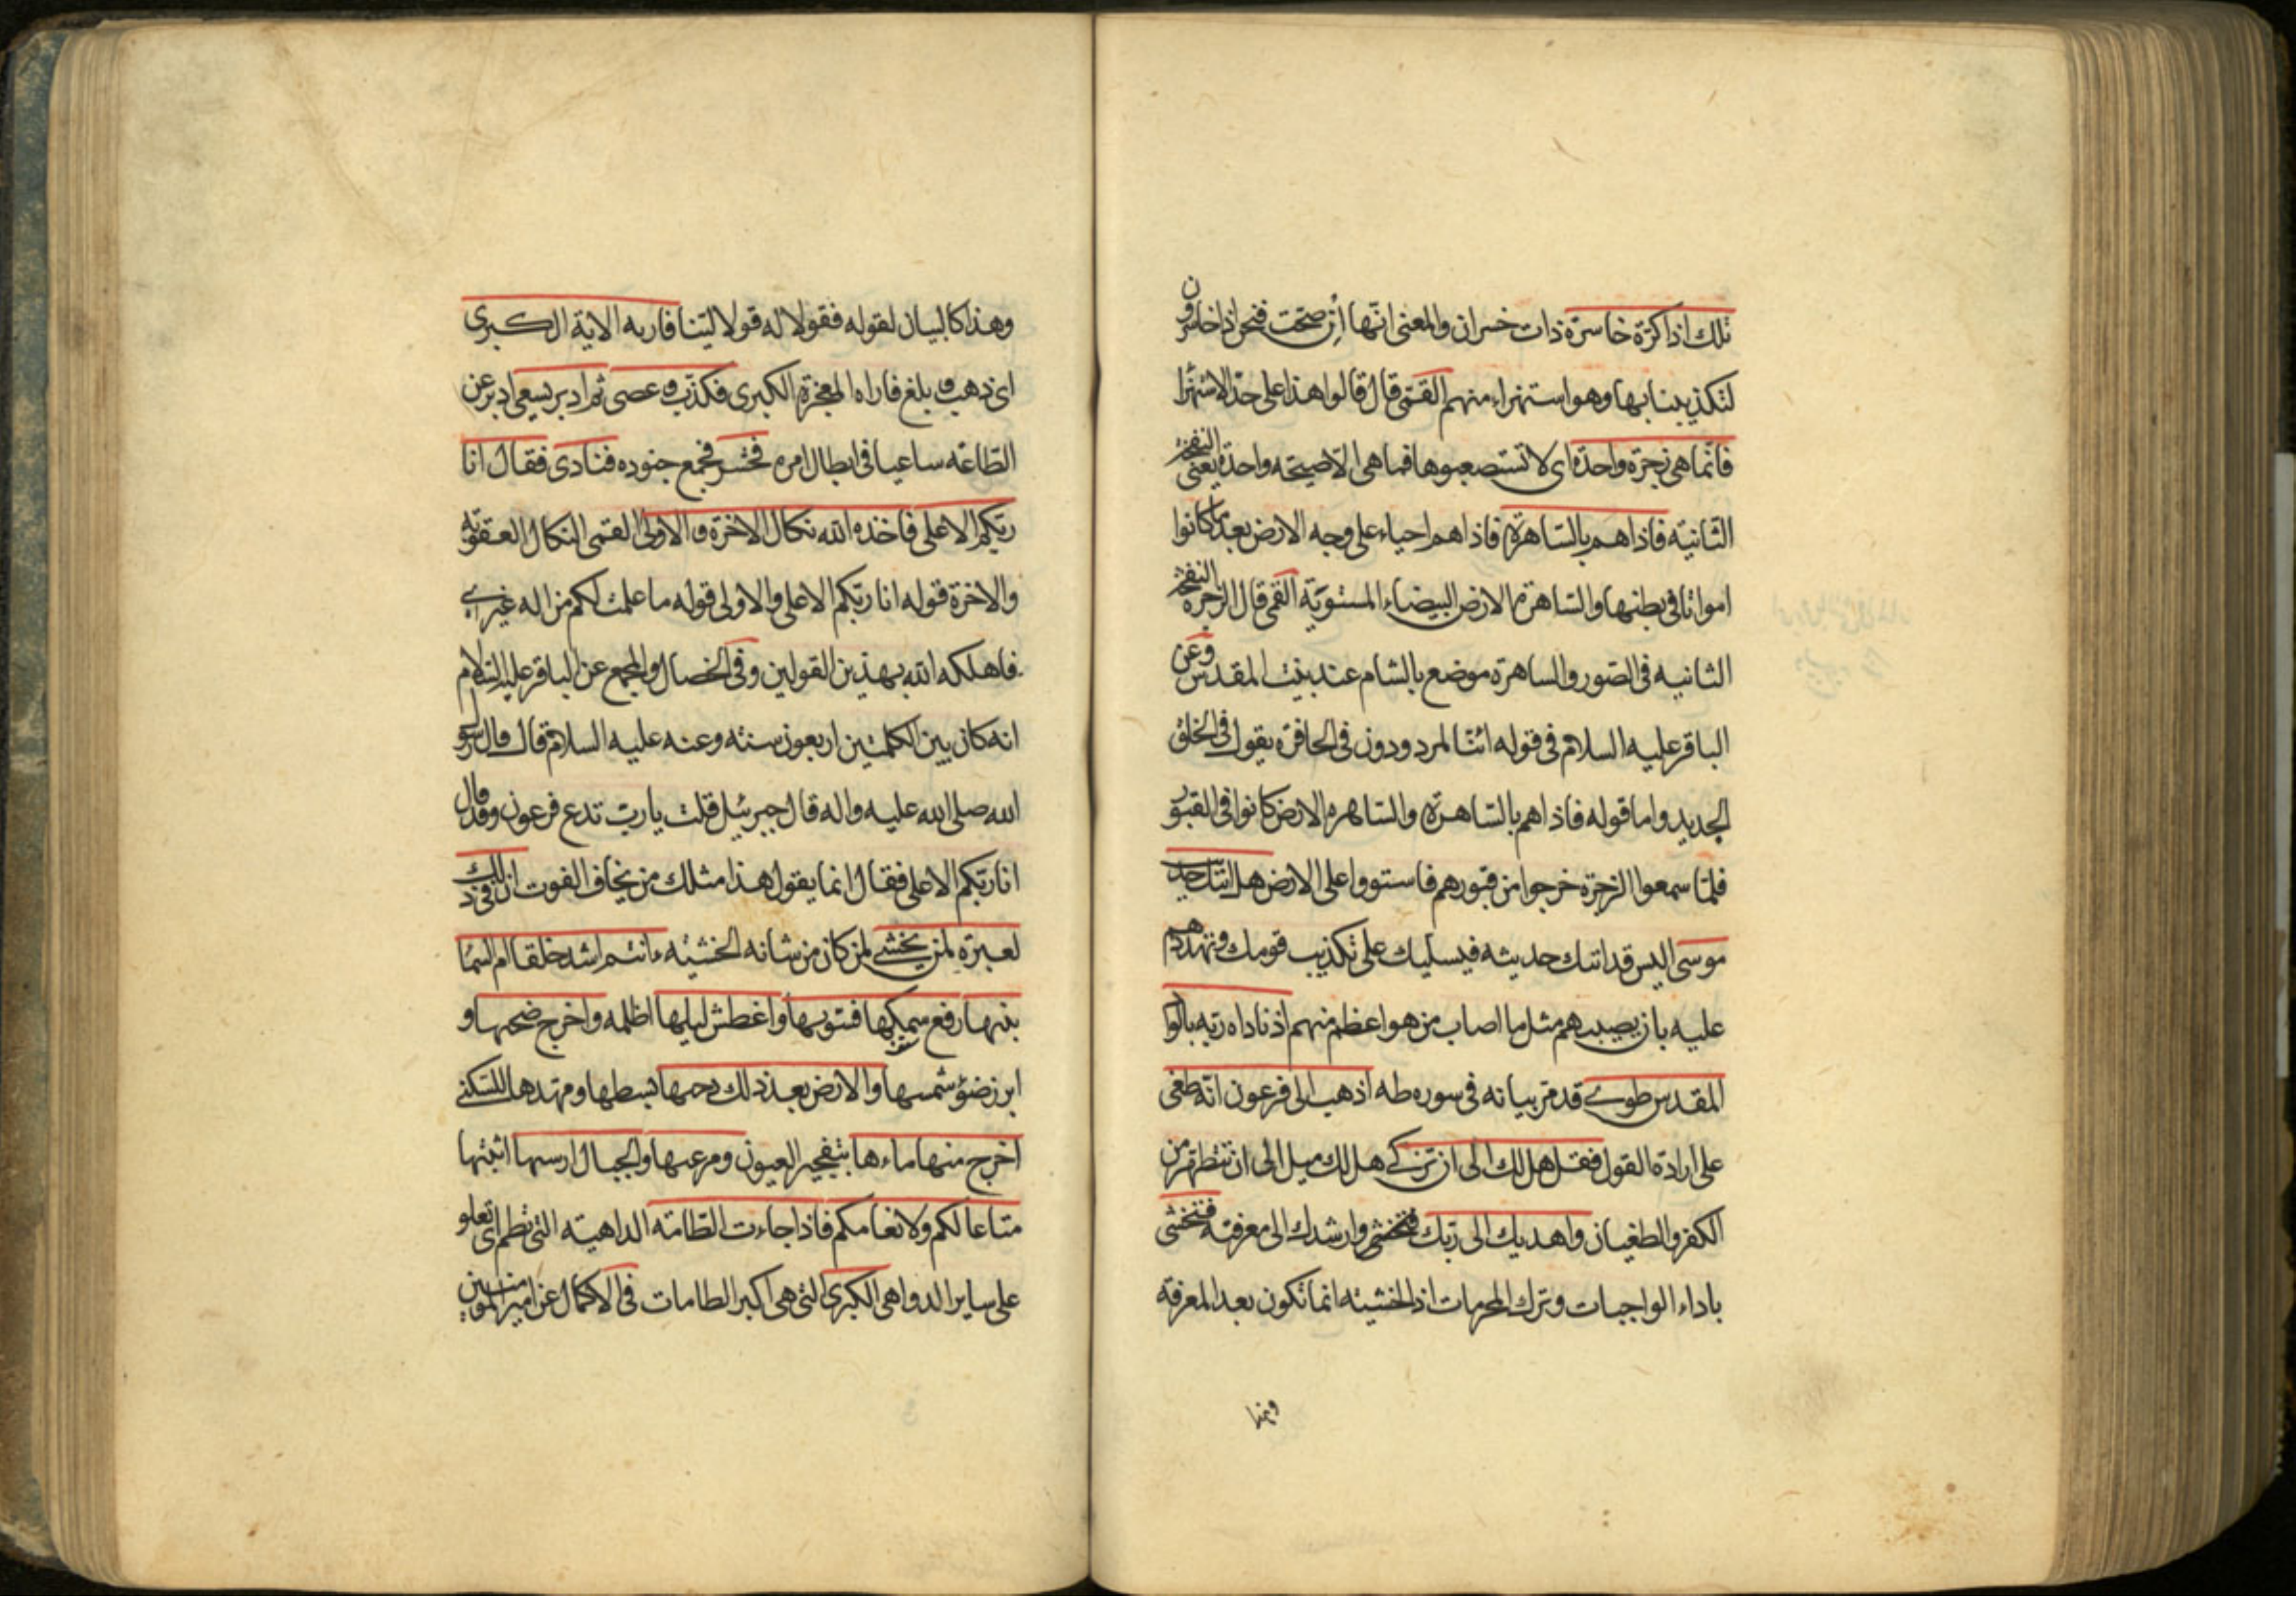 تلك اذا كرّة خاسرة ذات خسران والمعنى انّها اِنْ صحّت فنحن اذا خاسرون
لتكذيبنا بها وهو استهزاء منهم القمّى قال قالوا هذا على حدّ الاستهزا
فانّما هى زجرة واحدة اى لا تستصعبوها فما هى الّا صيحة واحدة يعنى النفخة
الثّانية فاذا هم بالسّاهرة فاذا هم احياء على وجه الارض بعد ما كانوا
امواتا فى بطنها والسّاهرة الارض البيضاء المستويّة القمّى قال الزجرة النفخة
الثانيه فى الصّور والساهرة موضع بالشام عند بيت المقدس وعن
الباقر عليه السلام فى قوله ائنّا لمردودون فى الحافرة يقول فى الخلق
الجديد واما قوله فاذا هم بالسّاهرة والسّاهرة الارض كانوا فى القبور
فلمّا سمعوا الزجرة خرجوا من قبورهم فاستووا على الارض هل اتىك حديث
موسى اليس قد اتىك حديثه فيسلّيك على تكذيب قومك وتهدّدهم
عليه بان يصيبهم مثل ما اصاب من هو اعظم منهم اذ ناداه ربّه بالوا
المقدس طوى قد مرّ بيانه فى سوره طه اذهب الى فرعون انّه طغى
على ارادة القول فقل هل لك الى ان تزكّى هل لك ميل الى ان تتطهّر من
الكفر والطغيان واهديك الى ربّك فتخشى وارشدك الى معرفته فتخشى
باداء الواجبات وترك المحرمات اذ الخشيّة انما تكون بعد المعرفة
وهذا
وهذا كالبيان لقوله فقولا له قولا ليّنا فاريه الاية الكبرى
اى ذهب وبلغ فاراه المعجزة الكبرى فكذّب وعصى ثم ادبر يسعى ادبر عن
الطّاعه ساعيا فى ابطال امره فحشر فجمع جنوده فنادى فقال انا
ربّكم الاعلى فاخذه الله نكال الاخرة والاولى القمى النكال العقوبة
والاخرة قوله انا ربّكم الاعلى والاولى قوله ما علمت لكم من اله غيرى
فاهلكه الله بهذين القولين وفى الخصال والمجمع عن الباقر عليه السّلام
انه كان بين الكلمتين اربعون سنته وعنه عليه السلام قال قال رسول
الله صلى الله عليه واله قال جبرئيل قلت يا ربّ تدع فرعون وقد قال
انا ربّكم الاعلى فقال انما يقول هذا مثلك من يخاف الفوت ان فى ذلك
لعبرة لمن يخشى لمن كان من شانه الخشيّه ءانتم اشد خلقا ام السّما
بنىها رفع سمكها فسوىها واغطش ليلها اظلمه واخرج ضحىها و
ابرز ضؤ شمسها والارض بعد ذلك دحىها بسطها ومهّدها للسّكنى
اخرج منها ماءها بتفجير العيون ومرعىها والجبال ارسىها اثبتها
متاعا لكم ولانعامكم فاذا جاءت الطّامّه الداهيّه التى تطم اى تعلو
على ساير الدواهى الكبرى التى هى اكبر الطامات فى الاكمال عن امير المؤمنين